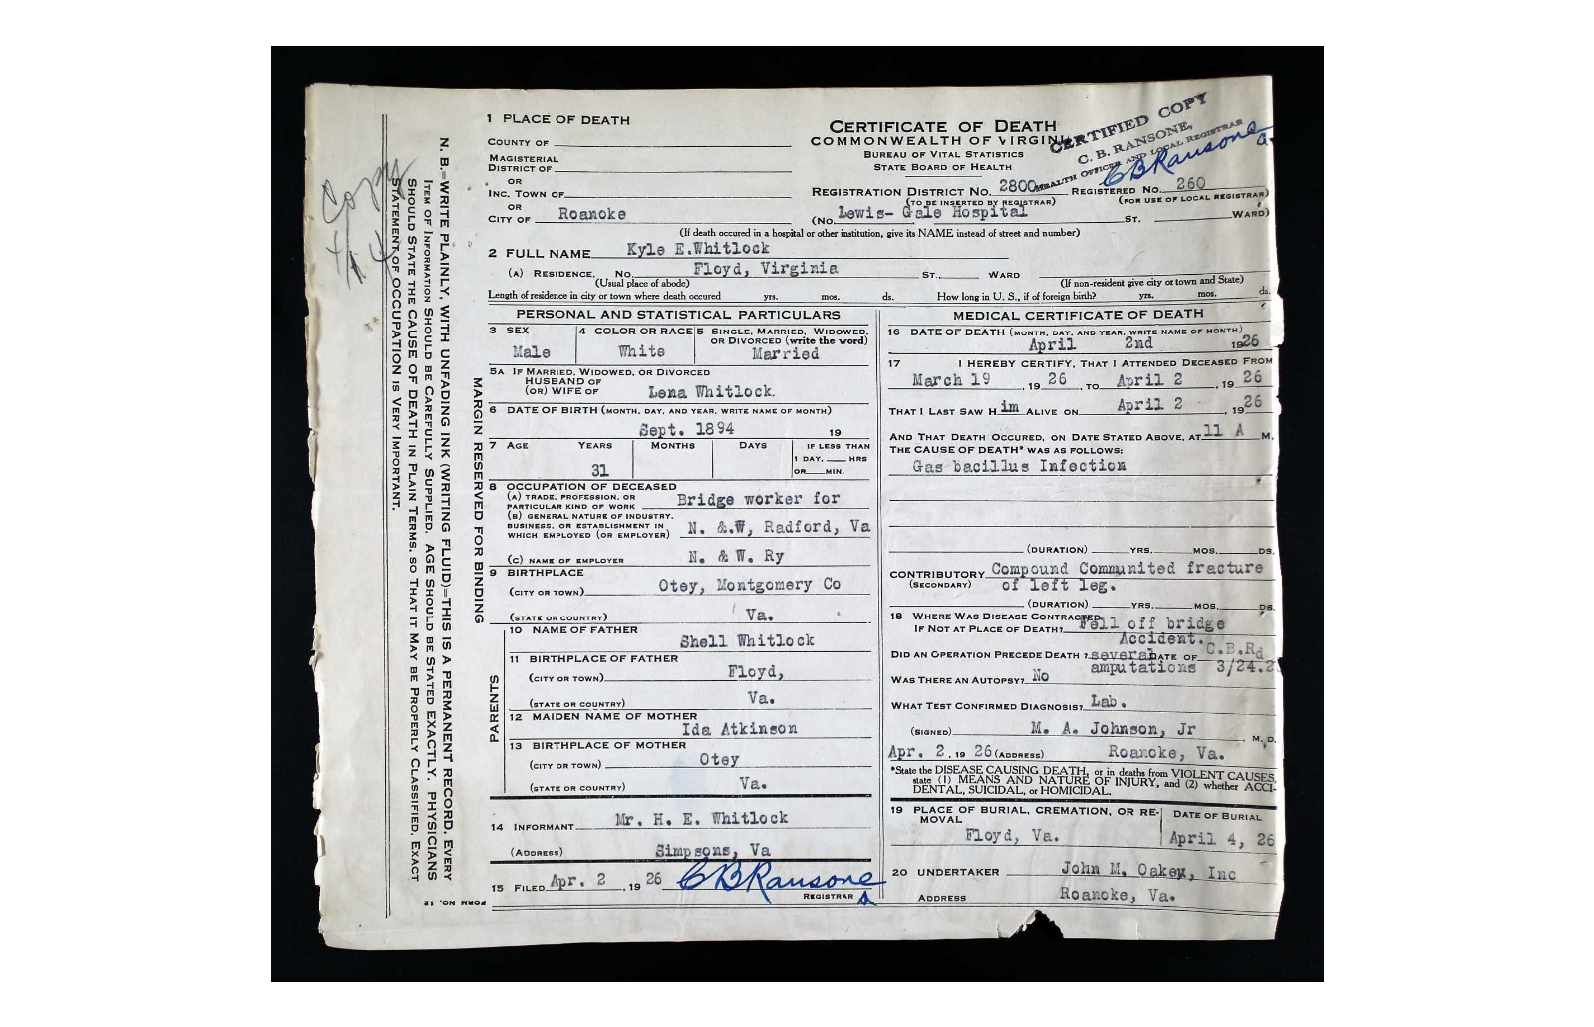 1 PLACE OF DEATH
COUNTY OF
MAGISTERIAL
DISTRICT OF
OR
INC. TOWN OF
OR
CITY OF Roanoke
CERTIFICATE OF DEATH
COMMONWEALTH OF VIRGINIA
BUREAU OF VITAL STATISTICS
STATE BOARD OF HEALTH
CERTIFIED COPY
C. B. RANSONE,
HEALTH OFFICER AND LOCAL REGISTRAR
C B Ransone
REGISTRATION DISTRICT NO. 2800 REGISTERED NO. 260
(TO BE INSERTED BY REGISTRAR) (FOR USE OF LOCAL REGISTRAR)
(NO. Lewis- Gale Hospital ST. WARD)
(If death occured in a hospital or other institution, give its NAME instead of street and number)
2 FULL NAME Kyle E.Whitlock
(A) RESIDENCE. NO. Floyd, Virginia ST., WARD
(Usual place of abode) (If non-resident give city or town and State)
Length of residence in city or town where death occured yrs. mos. ds. How long in U. S., if of foreign birth? yrs. mos. ds.
PERSONAL AND STATISTICAL PARTICULARS
3 SEX
Male
4 COLOR OR RACE
White
5 SINGLE, MARRIED, WIDOWED,
OR DIVORCED (write the vord)
Married
5A IF MARRIED, WIDOWED, OR DIVORCED
HUSEAND OF
(OR) WIFE OF Lena Whitlock.
6 DATE OF BIRTH (MONTH, DAY, AND YEAR, WRITE NAME OF MONTH)
Sept. 1894 19
7 AGE YEARS MONTHS DAYS IF LESS THAN
1 DAY, HRS
31 OR MIN.
8 OCCUPATION OF DECEASED
(A) TRADE, PROFESSION, OR
PARTICULAR KIND OF WORK Bridge worker for
(B) GENERAL NATURE OF INDUSTRY,
BUSINESS, OR ESTABLISHMENT IN
WHICH EMPLOYED (OR EMPLOYER) N. &.W, Radford, Va
(C) NAME OF EMPLOYER N. & W. Ry
9 BIRTHPLACE
(CITY OR TOWN) Otey, Montgomery Co
(STATE OR COUNTRY) Va.
PARENTS
10 NAME OF FATHER
Shell Whitlock
11 BIRTHPLACE OF FATHER
(CITY OR TOWN) Floyd,
(STATE OR COUNTRY) Va.
12 MAIDEN NAME OF MOTHER
Ida Atkinson
13 BIRTHPLACE OF MOTHER
(CITY OR TOWN) Otey
(STATE OR COUNTRY) Va.
14 INFORMANT Mr. H. E. Whitlock
(ADDRESS) Simpsons, Va
15 FILED Apr. 2, 19 26 C B Ransone
REGISTRAR
MEDICAL CERTIFICATE OF DEATH
16 DATE OF DEATH (MONTH, DAY, AND YEAR, WRITE NAME OF MONTH)
April 2nd 1926
17 I HEREBY CERTIFY, THAT I ATTENDED DECEASED FROM
March 19, 19 26, TO April 2, 19 26
THAT I LAST SAW H im ALIVE ON April 2, 1926
AND THAT DEATH OCCURED, ON DATE STATED ABOVE, AT 11 A M.
THE CAUSE OF DEATH* WAS AS FOLLOWS:
Gas bacillus Infection
(DURATION) YRS. MOS. DS.
CONTRIBUTORY Compound Communited fracture
(SECONDARY) of left leg.
(DURATION) YRS. MOS. DS.
18 WHERE WAS DISEASE CONTRACTED
IF NOT AT PLACE OF DEATH? Fell off bridge
Accident.
DID AN OPERATION PRECEDE DEATH? several DATE OF C.B.Rd
amputations 3/24.2
WAS THERE AN AUTOPSY? No
WHAT TEST CONFIRMED DIAGNOSIS? Lab.
(SIGNED) M. A. Johnson, Jr M. D.
Apr. 2, 19 26 (ADDRESS) Roanoke, Va.
*State the DISEASE CAUSING DEATH, or in deaths from VIOLENT CAUSES,
state (1) MEANS AND NATURE OF INJURY, and (2) whether ACCI-
DENTAL, SUICIDAL, or HOMICIDAL.
19 PLACE OF BURIAL, CREMATION, OR RE-
MOVAL
Floyd, Va.
DATE OF BURIAL
April 4, 26
20 UNDERTAKER John M. Oakey, Inc
ADDRESS Roanoke, Va.
MARGIN RESERVED FOR BINDING
N. B.=WRITE PLAINLY, WITH UNFADING INK (WRITING FLUID)=THIS IS A PERMANENT RECORD. EVERY
ITEM OF INFORMATION SHOULD BE CAREFULLY SUPPLIED. AGE SHOULD BE STATED EXACTLY. PHYSICIANS
SHOULD STATE THE CAUSE OF DEATH IN PLAIN TERMS, SO THAT IT MAY BE PROPERLY CLASSIFIED. EXACT
STATEMENT OF OCCUPATION IS VERY IMPORTANT.
FORM NO. 12
Copy